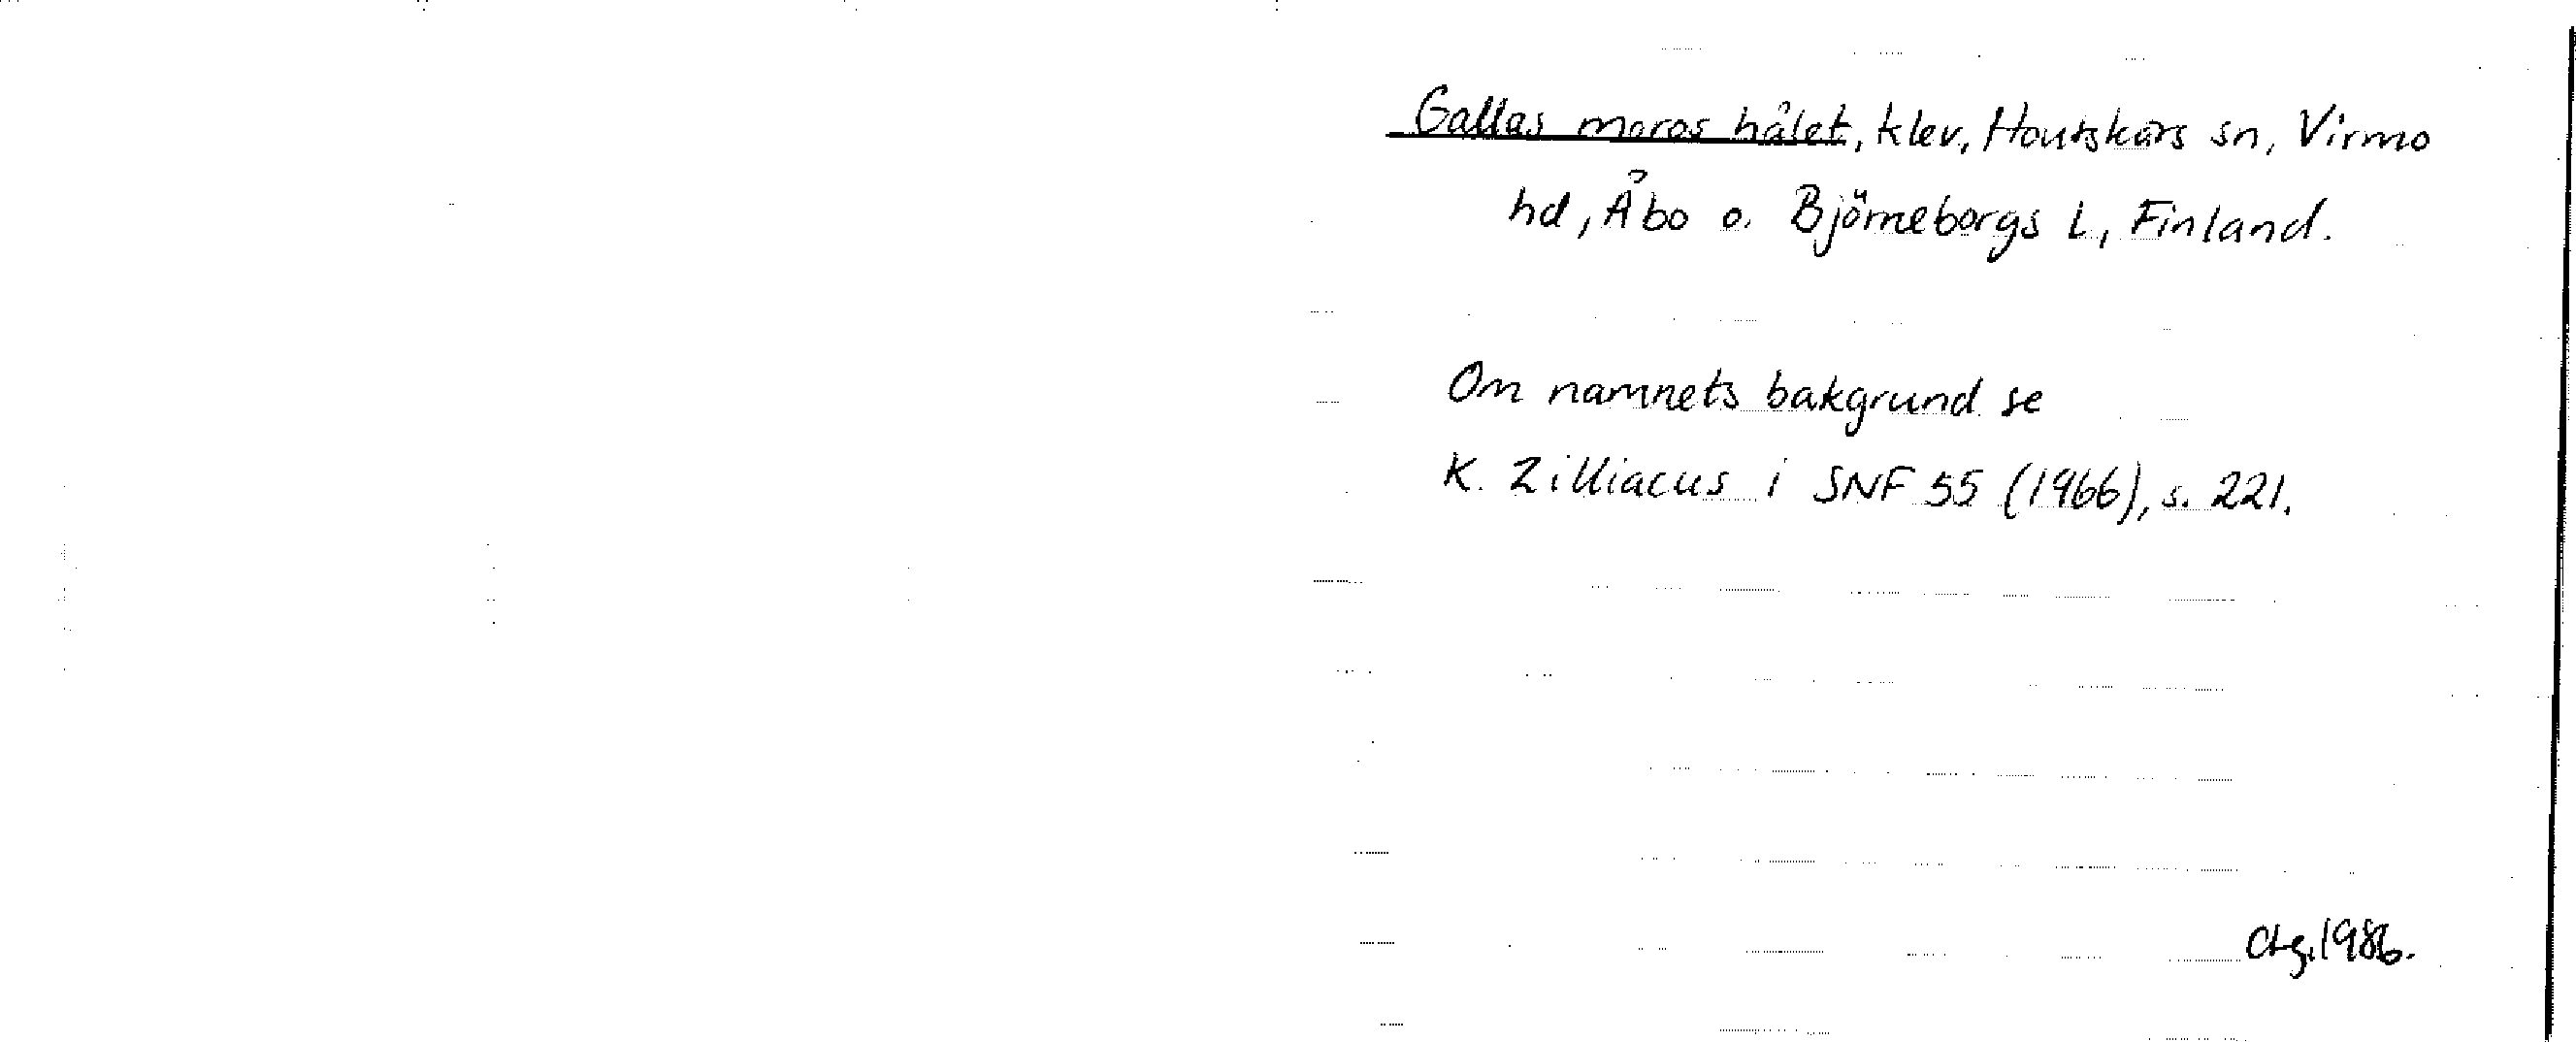 Gallas moros hålet, klev, Houtskärs sn, Virmo
hd, Åbo o. Björneborgs L, Finland.
Om namnets bakgrund se
K. Zilliacus i SNF 55 (1966), s. 221.
1986.